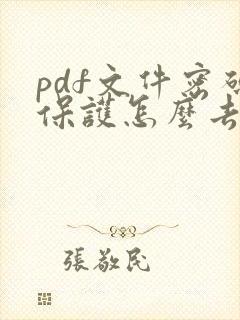 pdf文件密碼
保護怎麼去
張敬民